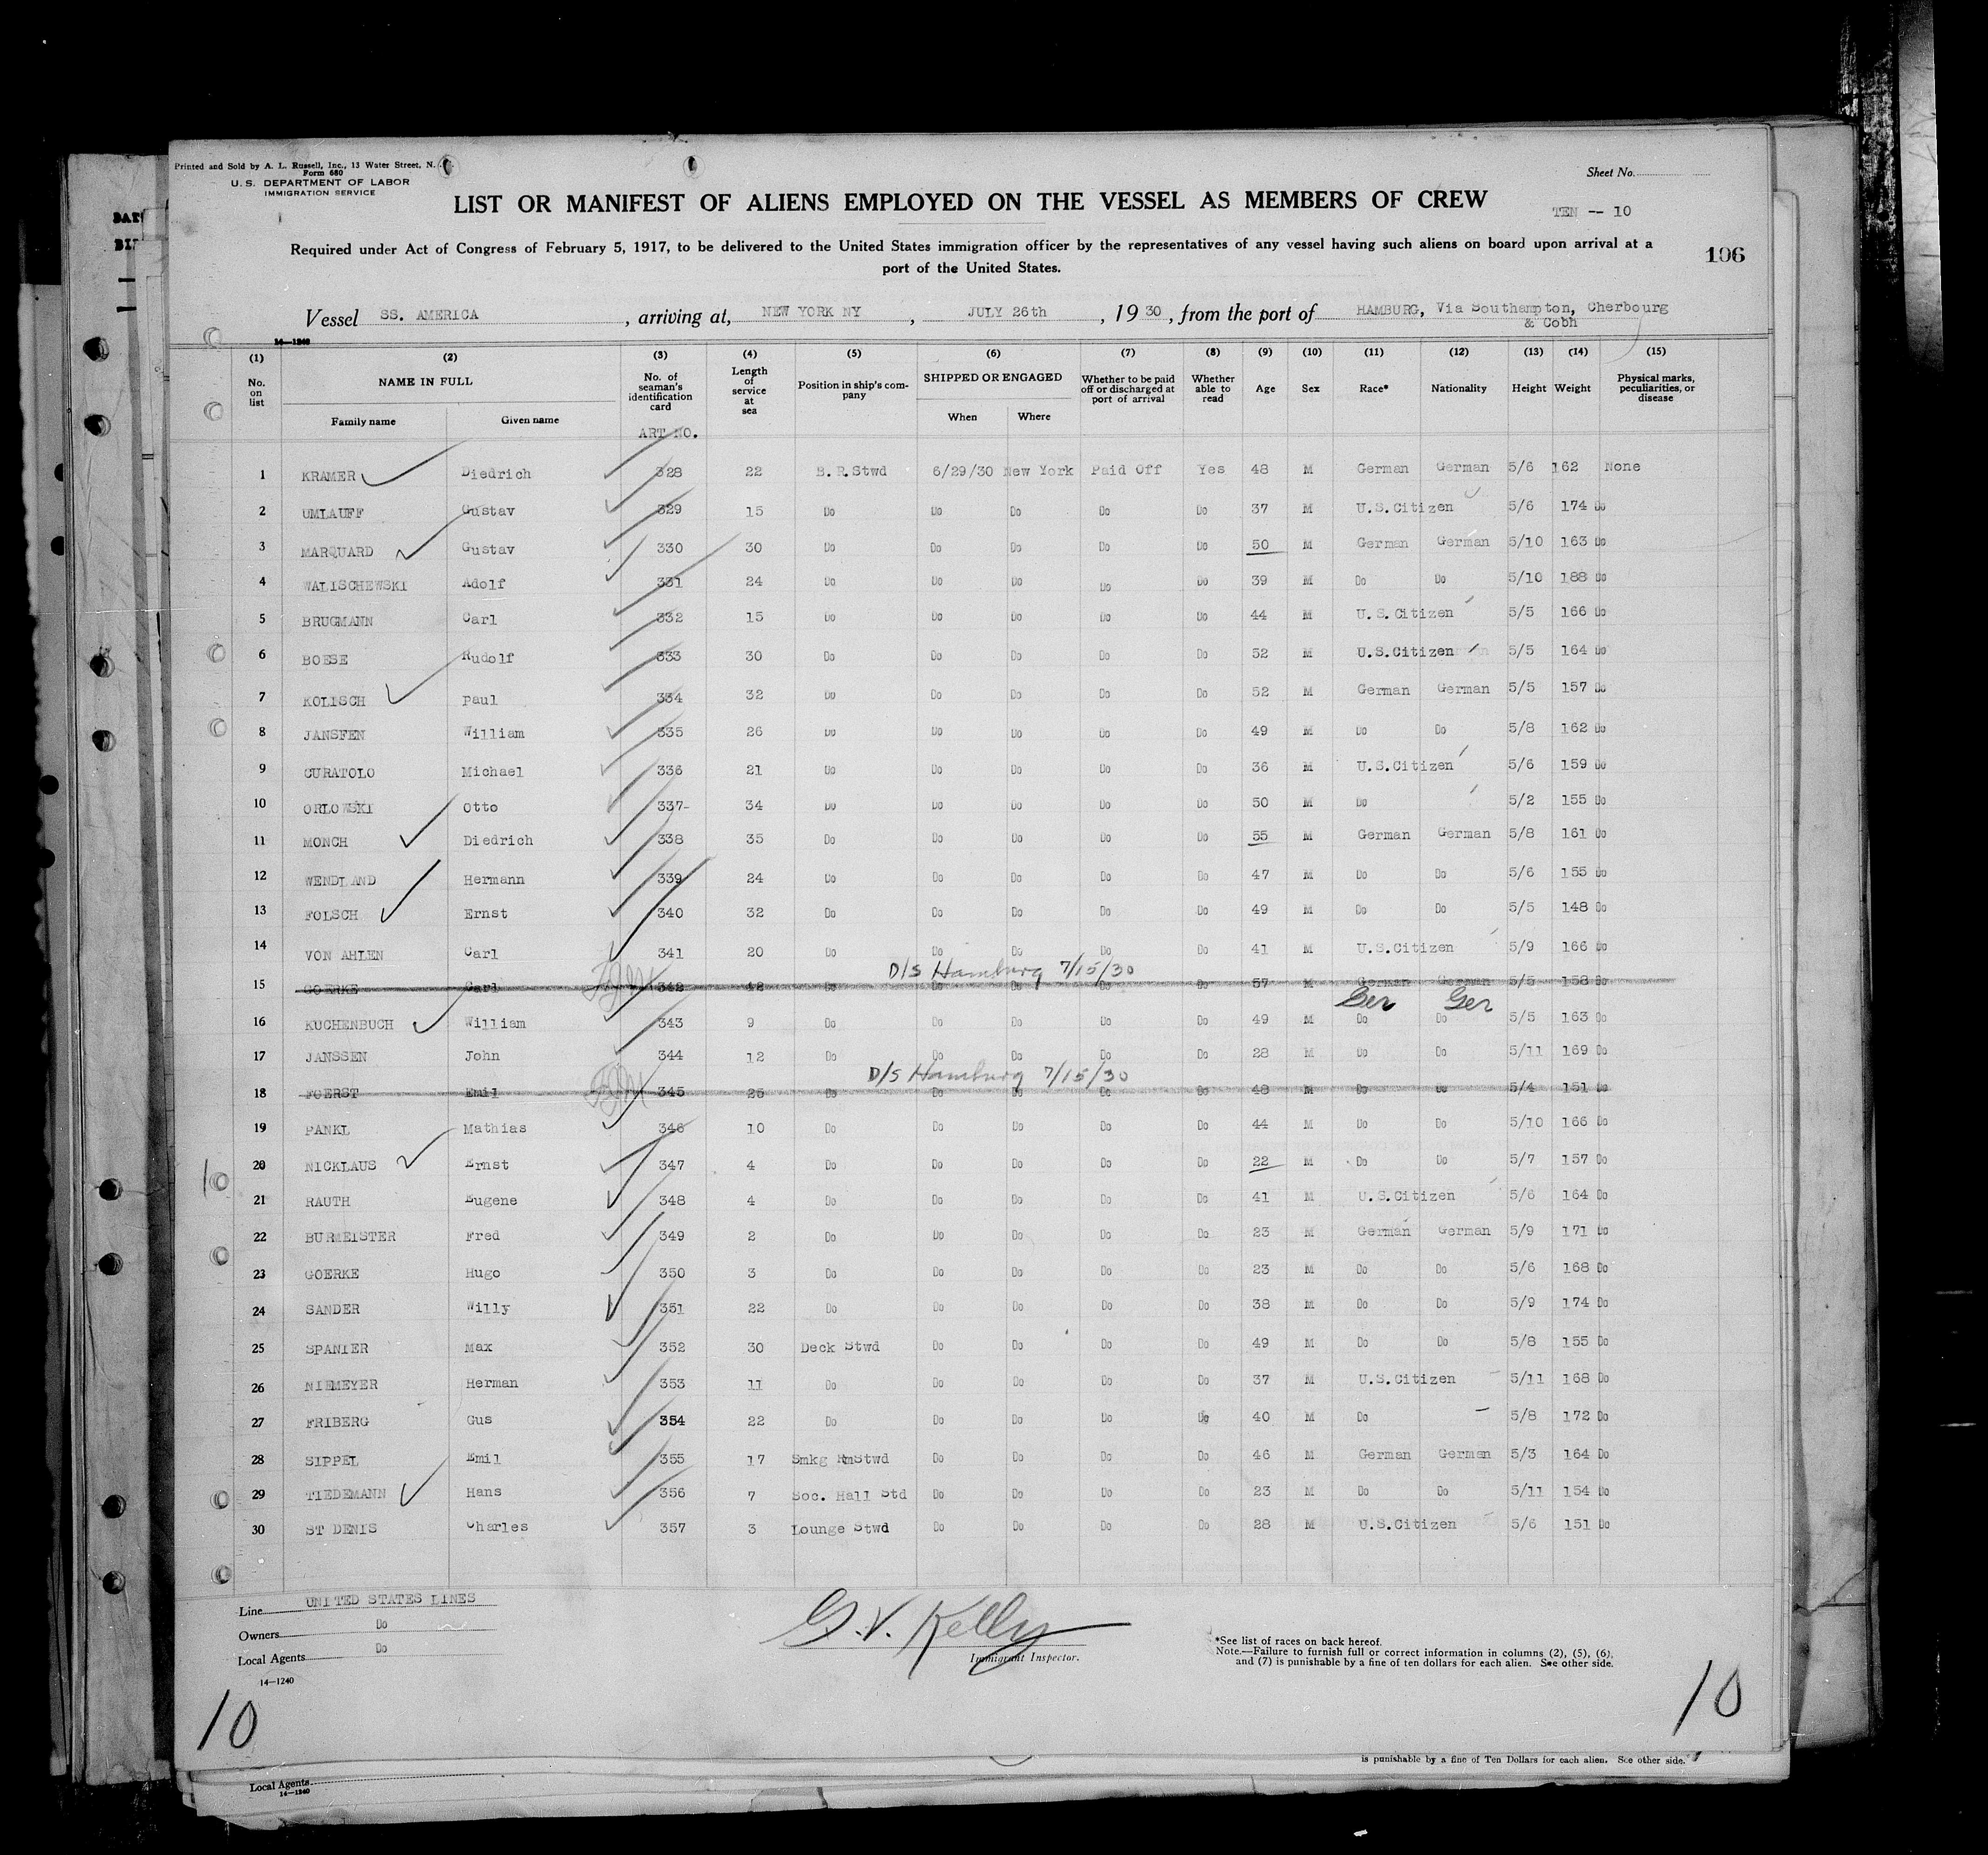 Printed and Sold by A. L. Russell, Inc., 13 Water Street, N.
Form 680
U. S. DEPARTMENT OF LABOR
IMMIGRATION SERVICE
Sheet No.
LIST OR MANIFEST OF ALIENS EMPLOYED ON THE VESSEL AS MEMBERS OF CREW
TEN -- 10
Required under Act of Congress of February 5, 1917, to be delivered to the United States immigration officer by the representatives of any vessel having such aliens on board upon arrival at a
port of the United States.
106
Vessel SS. AMERICA, arriving at, NEW YORK NY, JULY 26th, 1930, from the port of HAMBURG, Via Southampton, Cherbourg
& Cobh
14—1240
(1) (2) (3) (4) (5) (6) (7) (8) (9) (10) (11) (12) (13) (14) (15)
No. on list NAME IN FULL Family name Given name No. of seaman's identification card Length of service at sea Position in ship's company SHIPPED OR ENGAGED When Where Whether to be paid off or discharged at port of arrival Whether able to read Age Sex Race* Nationality Height Weight Physical marks, peculiarities, or disease
ART NO.
1 KRAMER Diedrich 328 22 B.R.Stwd 6/29/30 New York Paid Off Yes 48 M German German 5/6 162 None
2 UMLAUFF Gustav 329 15 Do Do Do Do Do 37 M U.S.Citizen 5/6 174 Do
3 MARQUARD Gustav 330 30 Do Do Do Do Do 50 M German German 5/10 163 Do
4 WALISCHEWSKI Adolf 331 24 Do Do Do Do Do 39 M Do Do 5/10 188 Do
5 BRUGMANN Carl 332 15 Do Do Do Do Do 44 M U.S.Citizen 5/5 166 Do
6 BOESE Rudolf 333 30 Do Do Do Do Do 52 M U.S.Citizen 5/5 164 Do
7 KOLISCH Paul 334 32 Do Do Do Do Do 52 M German German 5/5 157 Do
8 JANSFEN William 335 26 Do Do Do Do Do 49 M Do Do 5/8 162 Do
9 CURATOLO Michael 336 21 Do Do Do Do Do 36 M U.S.Citizen 5/6 159 Do
10 ORLOWSKI Otto 337 34 Do Do Do Do Do 50 M Do 5/2 155 Do
11 MONCH Diedrich 338 35 Do Do Do Do Do 55 M German German 5/8 161 Do
12 WENDLAND Hermann 339 24 Do Do Do Do Do 47 M Do Do 5/6 155 Do
13 FOLSCH Ernst 340 32 Do Do Do Do Do 49 M Do Do 5/5 148 Do
14 VON AHLEN Carl 341 20 Do Do Do Do Do 41 M U.S.Citizen 5/9 166 Do
D/S Hamburg 7/15/30
15 GOERKE Carl 342 42 Do Do Do Do Do 57 M German German 5/5 158 Do
Ger Ger
16 KUCHENBUCH William 343 9 Do Do Do Do Do 49 M Do Do 5/5 163 Do
17 JANSSEN John 344 12 Do Do Do Do Do 28 M Do Do 5/11 169 Do
D/S Hamburg 7/15/30
18 FOERST Emil 345 25 Do Do Do Do Do 48 M Do Do 5/4 151 Do
19 PANKL Mathias 346 10 Do Do Do Do Do 44 M Do Do 5/10 166 Do
20 NICKLAUS Ernst 347 4 Do Do Do Do Do 22 M Do Do 5/7 157 Do
21 RAUTH Eugene 348 4 Do Do Do Do Do 41 M U.S.Citizen 5/6 164 Do
22 BURMEISTER Fred 349 2 Do Do Do Do Do 23 M German German 5/9 171 Do
23 GOERKE Hugo 350 3 Do Do Do Do Do 23 M Do Do 5/6 168 Do
24 SANDER Willy 351 22 Do Do Do Do Do 38 M Do Do 5/9 174 Do
25 SPANIER Max 352 30 Deck Stwd Do Do Do Do 49 M Do Do 5/8 155 Do
26 NIEMEYER Herman 353 11 Do Do Do Do Do 37 M U.S.Citizen 5/11 168 Do
27 FRIBERG Gus 354 22 Do Do Do Do Do 40 M Do 5/8 172 Do
28 SIPPEL Emil 355 17 Smkg RmStwd Do Do Do Do 46 M German German 5/3 164 Do
29 TIEDEMANN Hans 356 7 Soc. Hall Std Do Do Do Do 23 M Do Do 5/11 154 Do
30 ST DENIS Charles 357 3 Lounge Stwd Do Do Do Do 28 M U.S.Citizen 5/6 151 Do
Line UNITED STATES LINES
Owners Do
Local Agents Do
14—1240
G. V. Kelly
Immigrant Inspector.
*See list of races on back hereof.
Note.—Failure to furnish full or correct information in columns (2), (5), (6),
and (7) is punishable by a fine of ten dollars for each alien. See other side.
10
10
is punishable by a fine of Ten Dollars for each alien. See other side.
Local Agents
14—1240